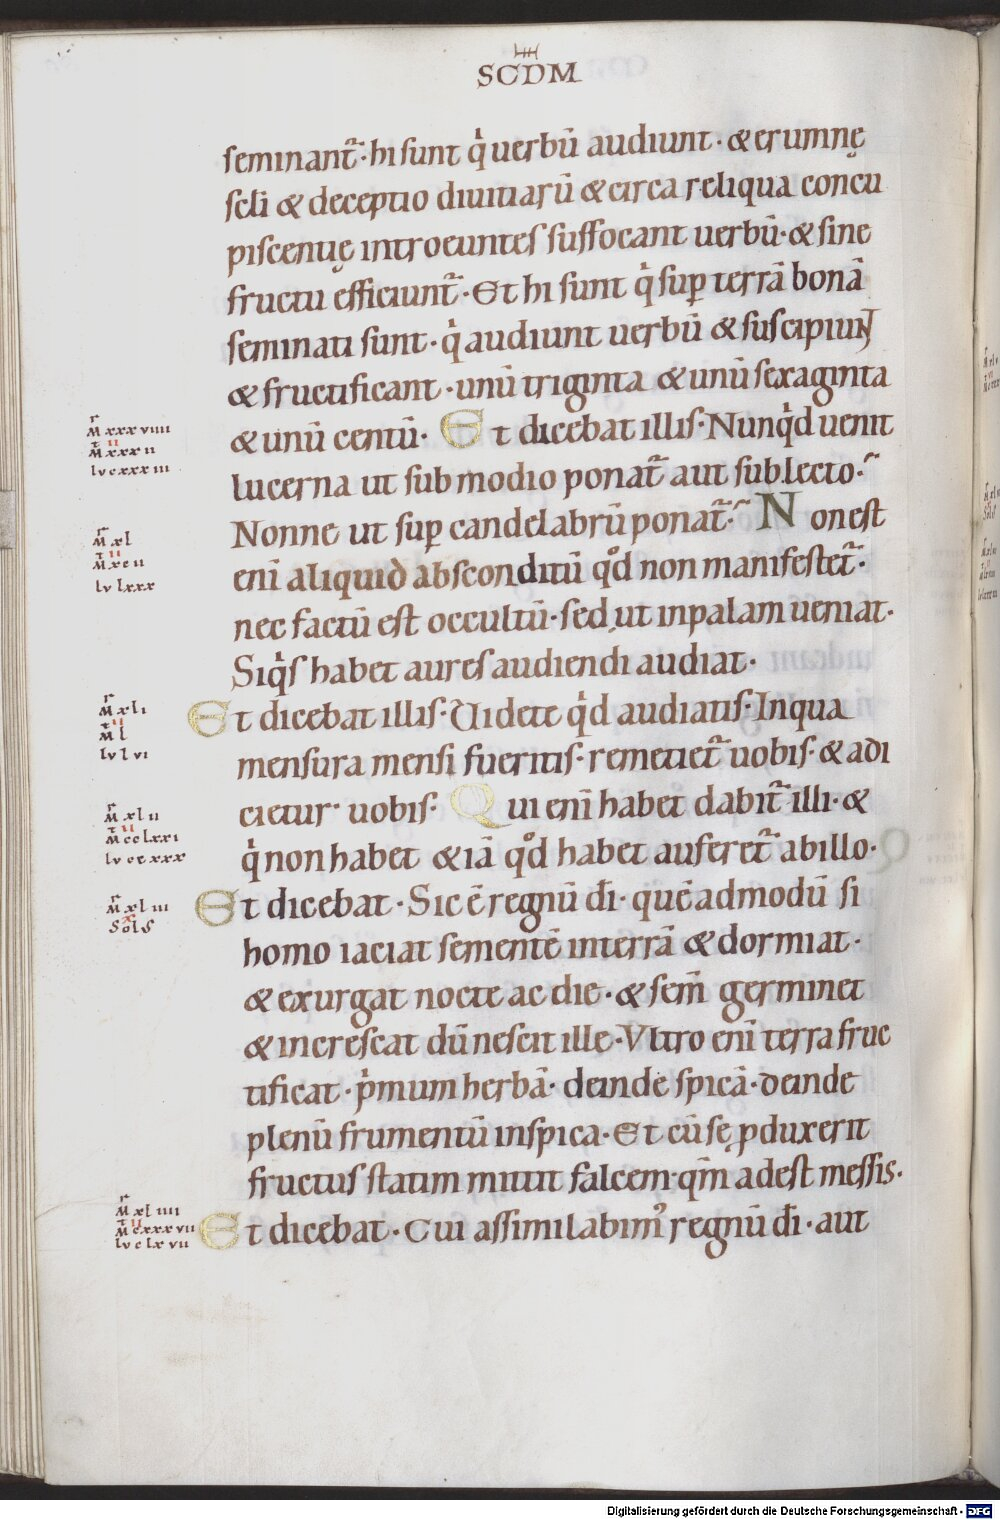 SCDM
seminant᷑·hi sunt qͥ uerbū audiunt·& erumnę
scli & deceptio diuitiarū & circa reliqua concu
piscentię introeuntes suffocant uerbū·& sine
fructu efficiunt᷑·Et hi sunt qͥ suꝑ terrā bonā
seminati sunt·qͥ audiunt uerbū & suscipiunT
& fructificant·unū triginta & unū sexaginta
& unū centū· Et dicebat illis·Nunqͥd uenit
lucerna ut sub modio ponat᷑ aut sub lecto·
Nonne ut suꝑ candelabrū ponat᷑· Non est
enī aliquid absconditū qͦd non manifestet᷑·
nec factū est occultū·sed ut in palam ueniat·
Siqͥs habet aures audiendi audiat·
Et dicebat illis·Uidete qͥd audiatis·In qua
mensura mensi fueritis·remetiet᷑ uobis·& adi
cietur uobis· Qui enī habet dabit᷑ illi·&
qͥ non habet & iā qͦd habet auferet᷑ ab illo·
Et dicebat·Sic ē regnū dī·quē admodū si
homo iaciat sementē in terrā & dormiat·
& exurgat nocte ac die·& sem̄ germinet
& increscat dū nescit ille·Vltro enī terra fruc
tificat·pͥmum herbā·deinde spicā·deinde
plenū frumentū in spica·Et cū sę ꝓduxerit
fructus statim mittit falcem·qm̄ adest messis·
Et dicebat·Cui assimilabimꝰ regnū dī·aut
M xxxviiii
M xxxii
lv cxxxiii
M xl
M xcii
lv lxxx
M xli
M l
lv lvi
M xlii
M cclxxi
lv ccxxx
M xliii
SolS
M xliiii
M cxxxvii
lv clxvii
Digitalisierung gefördert durch die Deutsche Forschungsgemeinschaft - DFG